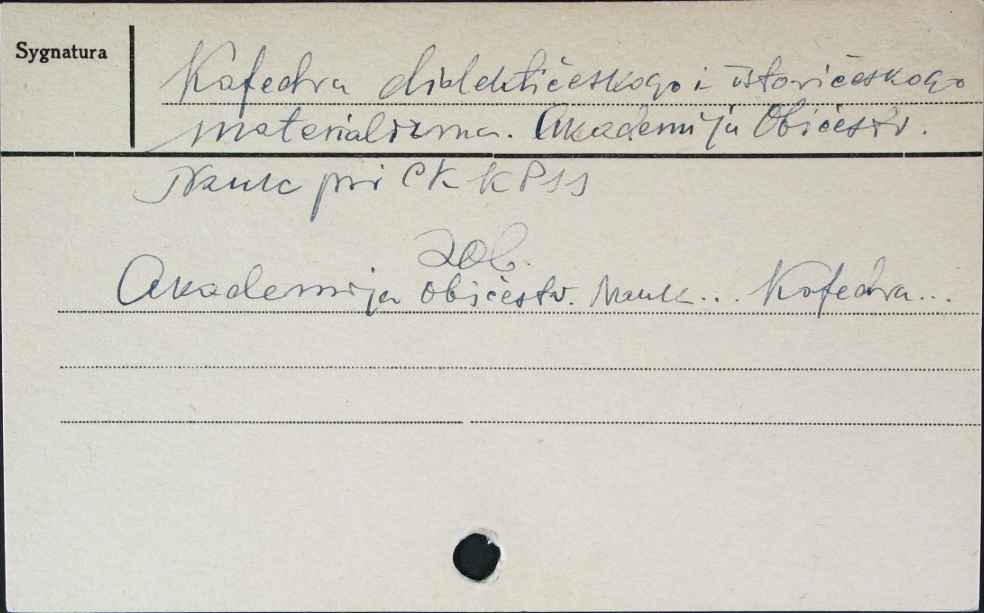 Sygnatura
Kafedra dialektičeskogo i istoričeskogo
materializma. Akademija Obščestv.
Nauk pri CK KPSS
zob.
Akademija obščestv. Nauk... Kafedra...